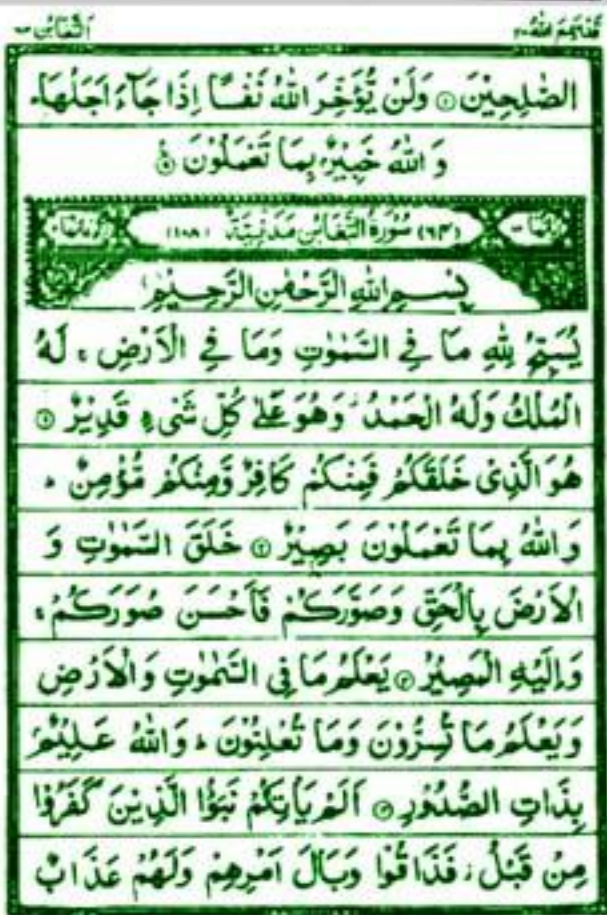 قَدْ سَمِعَ اللّٰهُ ۲۸ التَّغَابُن ۶۴
الصّٰلِحِيْنَ ۝۱۰ وَلَنْ يُّؤَخِّرَ اللّٰهُ نَفْسًا اِذَا جَآءَ اَجَلُهَا ؕ
وَاللّٰهُ خَبِيْرٌۢ بِمَا تَعْمَلُوْنَ
(۶۴) سُوْرَةُ التَّغَابُنِ مَدَنِيَّةٌ (۱۰۸)
بِسْمِ اللّٰهِ الرَّحْمٰنِ الرَّحِيْمِ
يُسَبِّحُ لِلّٰهِ مَا فِي السَّمٰوٰتِ وَمَا فِي الْاَرْضِ ۚ لَهُ
الْمُلْكُ وَلَهُ الْحَمْدُ ؗ وَهُوَ عَلٰى كُلِّ شَيْءٍ قَدِيْرٌ ۝۱
هُوَ الَّذِيْ خَلَقَكُمْ فَمِنْكُمْ كَافِرٌ وَّمِنْكُمْ مُّؤْمِنٌ ؕ
وَاللّٰهُ بِمَا تَعْمَلُوْنَ بَصِيْرٌ ۝۲ خَلَقَ السَّمٰوٰتِ وَ
الْاَرْضَ بِالْحَقِّ وَصَوَّرَكُمْ فَاَحْسَنَ صُوَرَكُمْ ۚ
وَاِلَيْهِ الْمَصِيْرُ ۝۳ يَعْلَمُ مَا فِي السَّمٰوٰتِ وَالْاَرْضِ
وَيَعْلَمُ مَا تُسِرُّوْنَ وَمَا تُعْلِنُوْنَ ؕ وَاللّٰهُ عَلِيْمٌۢ
بِذَاتِ الصُّدُوْرِ ۝۴ اَلَمْ يَاْتِكُمْ نَبَؤُا الَّذِيْنَ كَفَرُوْا
مِنْ قَبْلُ ؗ فَذَاقُوْا وَبَالَ اَمْرِهِمْ وَلَهُمْ عَذَابٌ